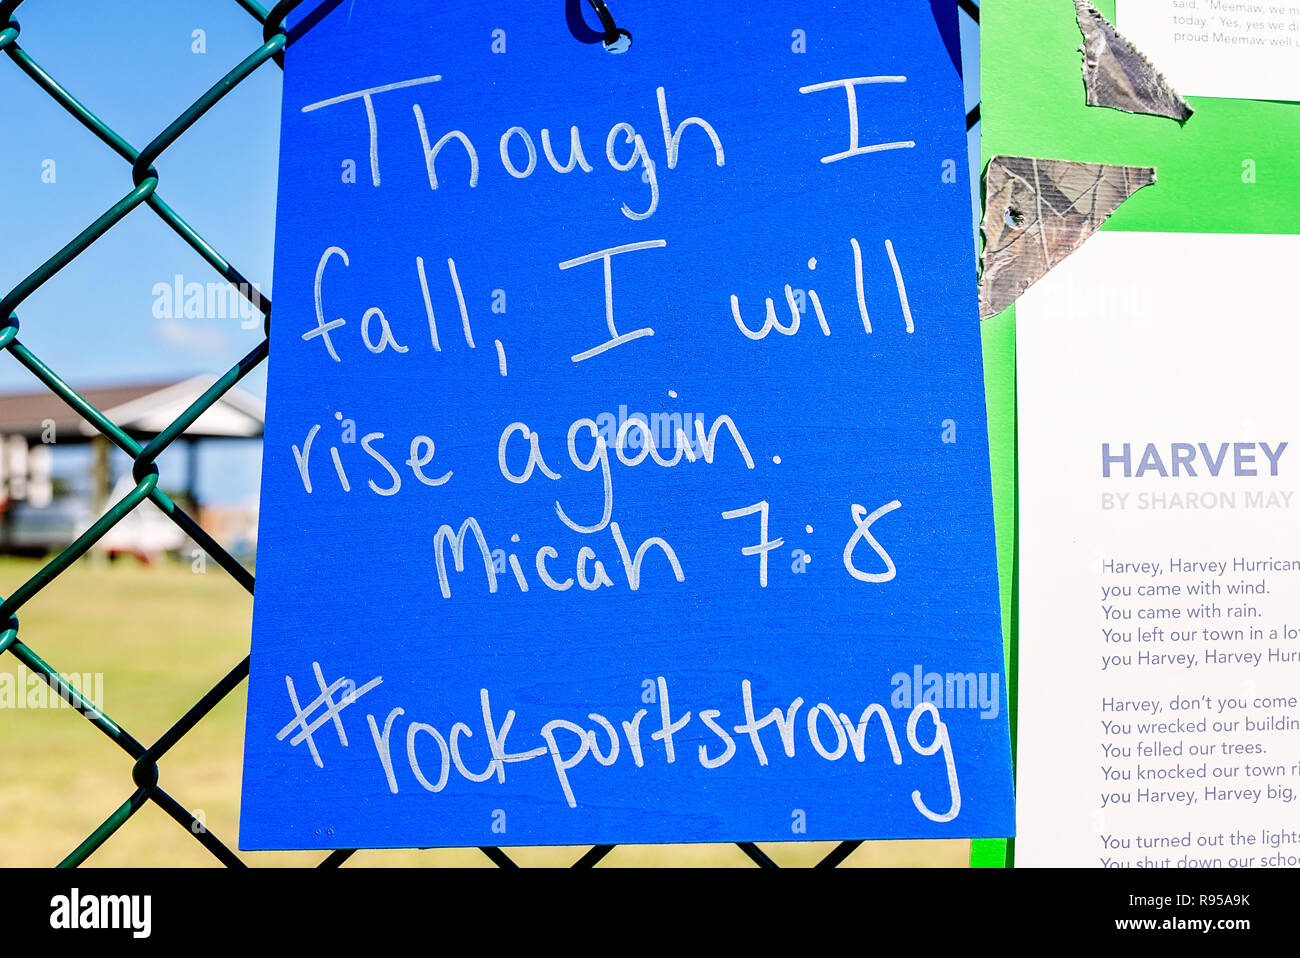 Though I
fall, I will
rise again.
Micah 7:8
#rockportstrong
said. "Meemaw, we m
today." Yes, yes we di
proud Meemaw well u
HARVEY
BY SHARON MAY
Harvey, Harvey Hurrican
you came with wind.
You came with rain.
You left our town in a lo
you Harvey, Harvey Hurr
Harvey, don't you come
You wrecked our buildin
You felled our trees.
You knocked our town ri
you Harvey, Harvey big,
You turned out the lights
You shut down our scho
alamy
Image ID: R95A9K
www.alamy.com